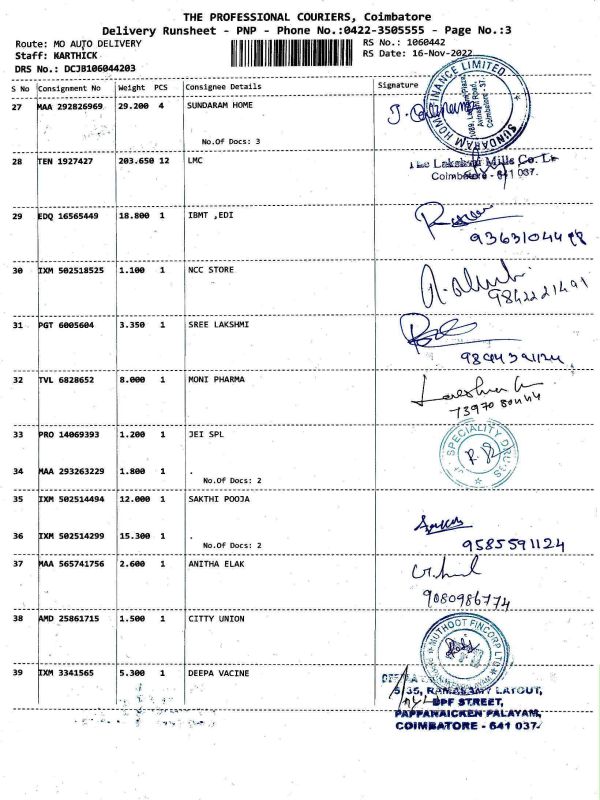 THE PROFESSIONAL COURIERS, Coimbatore
Delivery Runsheet - PNP - Phone No.:0422-3505555 - Page No.:3
Route: MO AUTO DELIVERY RS No.: 1060442
Staff: KARTHICK RS Date: 16-Nov-2022
DRS No.: DCJB106044203
S No Consignment No Weight PCS Consignee Details Signature
27 MAA 292826969 29.200 4 SUNDARAM HOME
No.Of Docs: 3
SUNDARAM HOME FINANCE LIMITED
Coimbatore - 37
28 TEN 1927427 203.650 12 LMC
The Lakshmi Mills Co. Lt
Coimbatore - 641 037.
29 EDQ 16565449 18.800 1 IBMT ,EDI
30 IXM 502518525 1.100 1 NCC STORE
9842221491
31 PGT 6005604 3.350 1 SREE LAKSHMI
32 TVL 6828652 8.000 1 MONI PHARMA
33 PRO 14069393 1.200 1 JEI SPL
SPECIALITY DRUGS
34 MAA 293263229 1.800 1 .
No.Of Docs: 2
35 IXM 502514494 12.000 1 SAKTHI POOJA
36 IXM 502514299 15.300 1 .
No.Of Docs: 2
9585591124
37 MAA 565741756 2.600 1 ANITHA ELAK
9080986774
38 AMD 25861715 1.500 1 CITTY UNION
MUTHOOT FINCORP LTD
39 IXM 3341565 5.300 1 DEEPA VACINE
5/35, RAMASAMY LAYOUT,
BPF STREET,
PAPPANAICKEN PALAYAM,
COIMBATORE - 641 037.